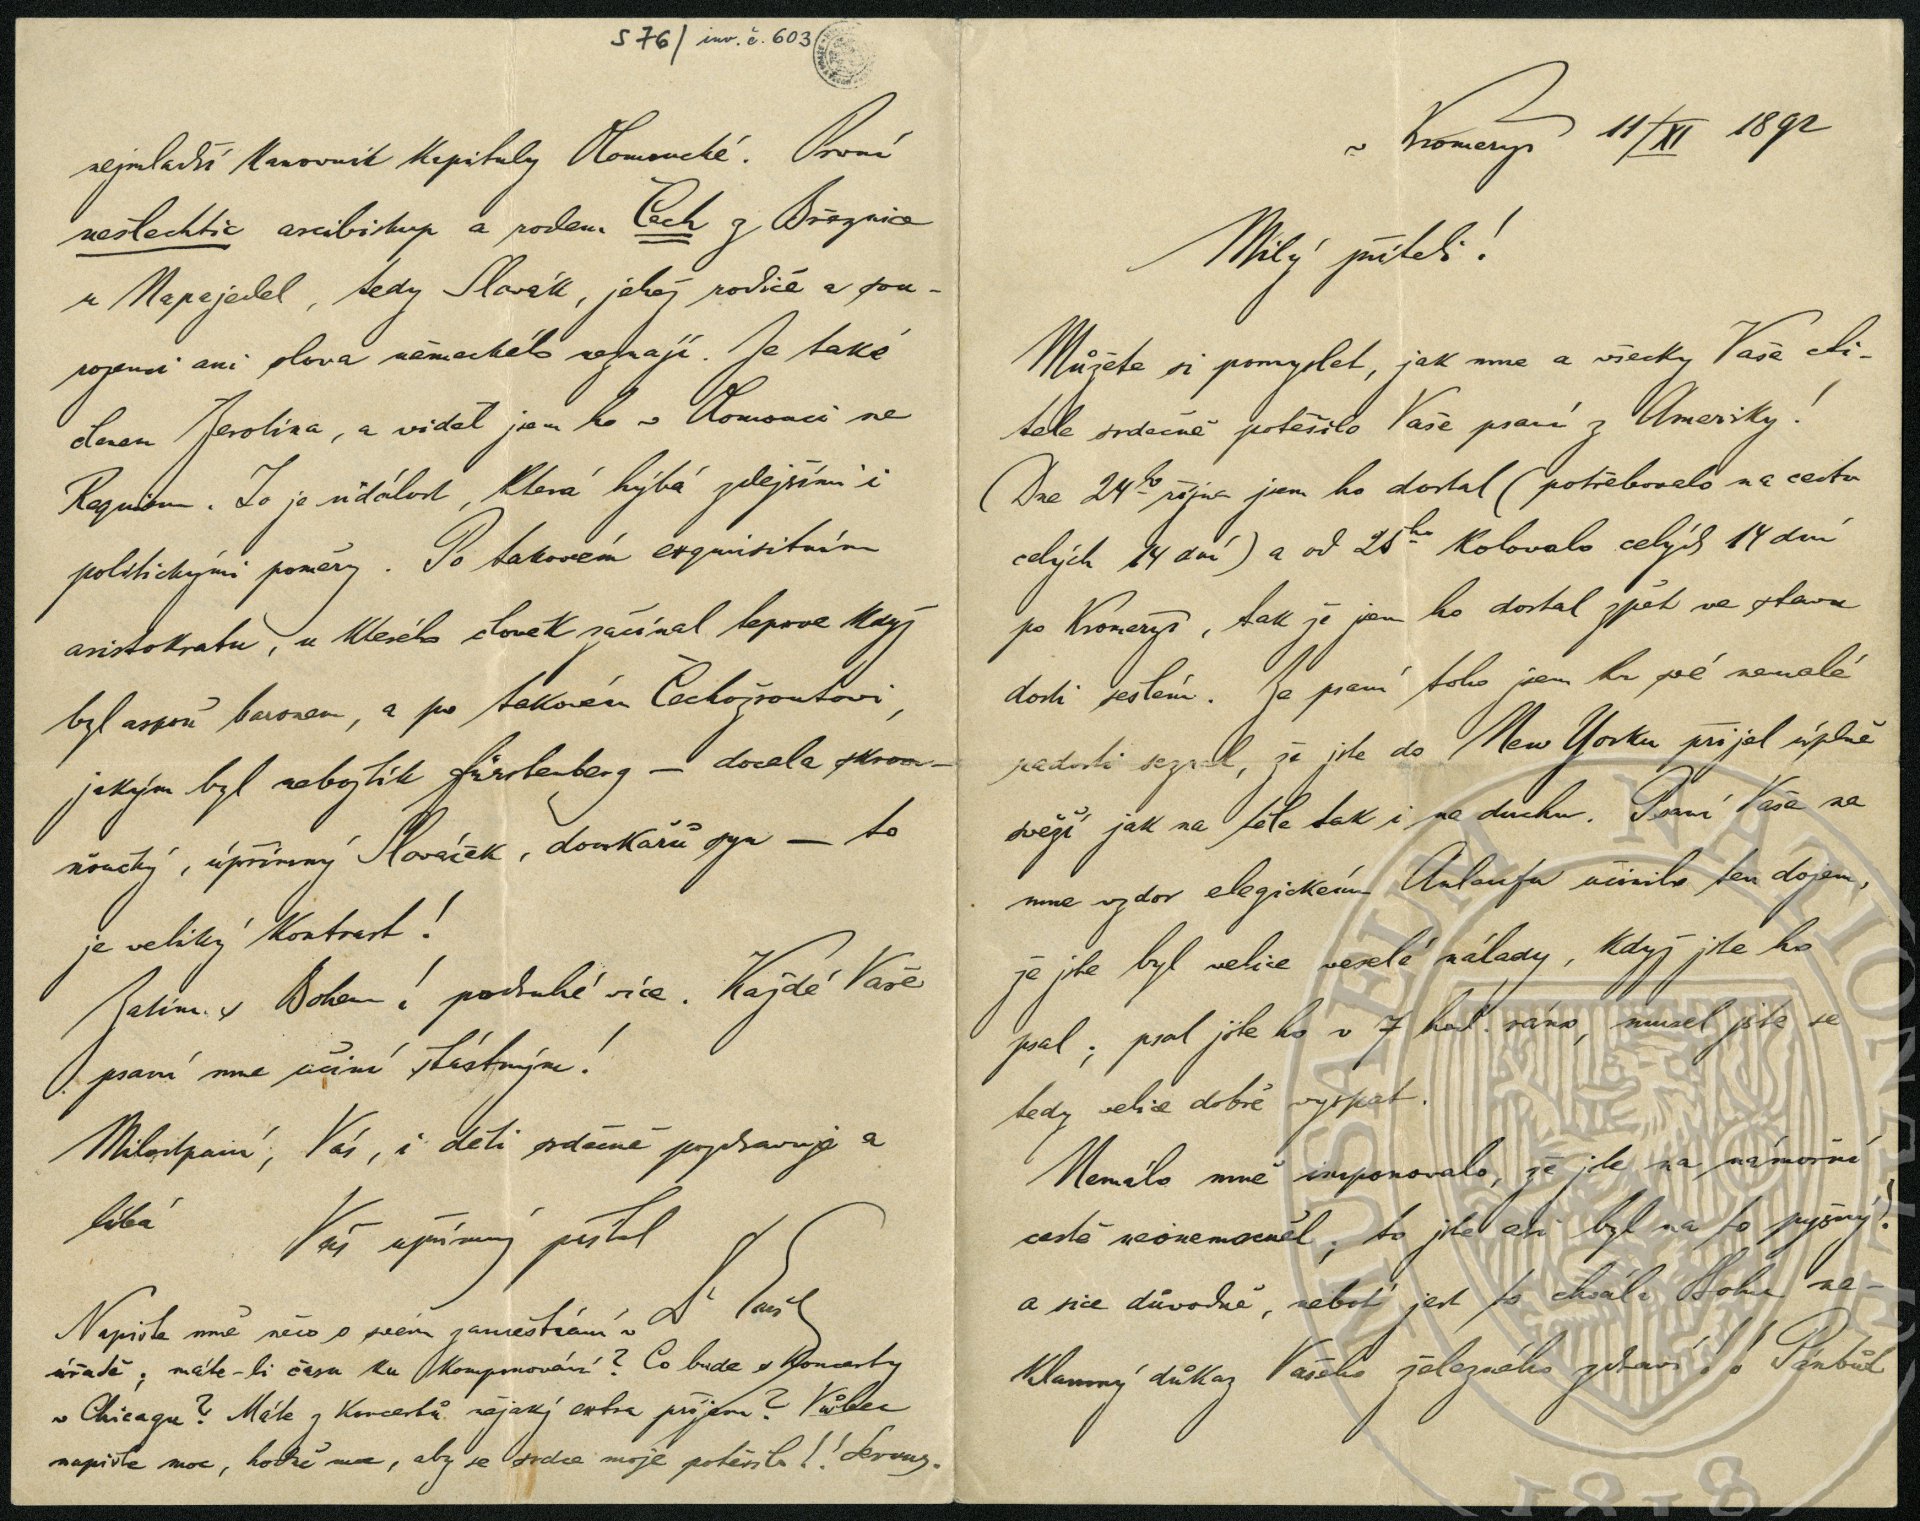 S 76/ inv. č. 603
v Kromeryż 11/XI 1892
Milý příteli!
Můžete si pomyslet, jak mne a všecky Vaše cti-
tele srdečně potěšilo Vaše psaní z Ameriky!
(Dne 24ho října jsem ho dostal (potřebovalo na cestu
celých 14 dní) a od 25ho kolovalo celých 14 dní
po Kromeryži, tak že jsem ho dostal zpět ve stavu
dosti sešlém. Ze psaní toho jsem ku své nemalé
radosti seznal, že jste do New Yorku přijel úplně
svěží jak na těle tak i na duchu. Psaní Vaše na
mne vzdor elegickému Anlaufu učinilo ten dojem,
že jste byl velice veselé nálady, když jste ho
psal; psal jste ho v 7 hod. ráno, musel jste se
tedy velice dobře vyspat.
Nemálo mně imponovalo, že jste na námořní
cestě neonemocněl; to jste asi byl na to pyšný!
a sice důvodně, neboť jest to chvála Bohu ne-
klamný důkaz Vašeho železného zdraví! Pánbůh
nejmladší kanovník kapituly Olomoucké. První
nešlechtic arcibiskup a rodem Čech z Březnice
u Napajedel, tedy Slovák, jehož rodiče a sou-
rozenci ani slova německého neznají. Je také
členem Žerotína, a viděl jsem ho v Olomouci na
Requiem. To je událost, která hýbá zdejšími i
politickými poměry. Po takovém exquisitním
aristokratu, u kterého člověk začínal teprve když
byl aspoň baronem, a po takovém Čechožroutovi,
jakým byl nebožtík Fürstenberg — docela skrom-
ňoučký, úpřímný Slováček, domkářů syn — to
je veliký kontrast!
Zatím s Bohem! podruhé více. Každé Vaše
psaní mne učiní šťastným!
Milostpaní, Vás, i děti srdečně pozdravuje a
líbá
Váš upřímný přítel
Napište mně něco o svém zaměstnání v
úřadě; máte-li času ku komponování? Co bude s koncerty
v Chicagu? Máte z koncertů nějaký extra příjem? Vůbec
napište moc, hodně moc, aby se srdce moje potěšilo!! Servus.